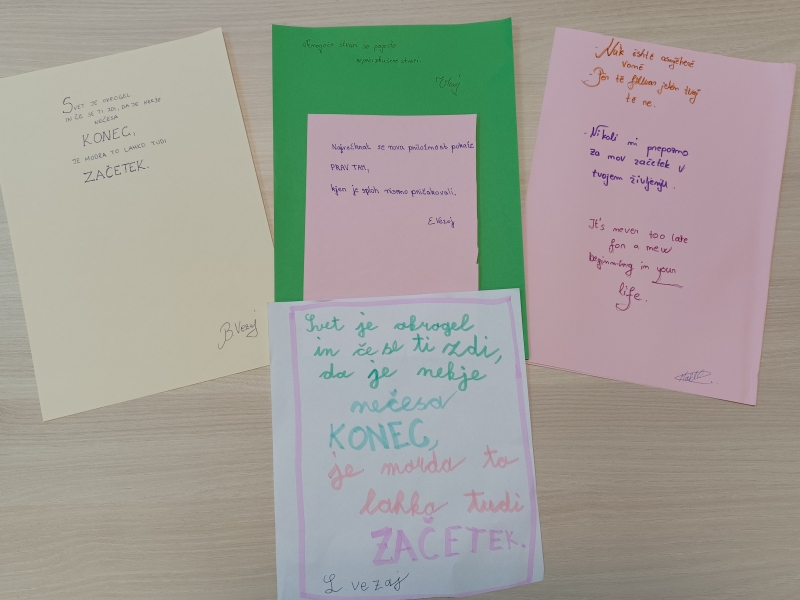 SVET JE OKROGEL
IN ČE SE TI ZDI, DA JE NEKJE
NEČESA
KONEC,
JE MORDA TO LAHKO TUDI
ZAČETEK.
B Vezaj
stvari se
stvari
Največkrat se nova priložnost pokaže
PRAV TAM,
kjer je sploh nismo pričakovali.
E. Vezaj
Nuk është asnjëherë
vonë
Për të filluar jetën tuaj
te re.
Nikoli ni prepozno
za nov začetek v
tvojem življenju.
It's never too late
for a new
beginning in your
life.
Svet je okrogel
in če se ti zdi,
da je nekje
nečesa
KONEC,
je morda to
lahko tudi
ZAČETEK.
L vezaj